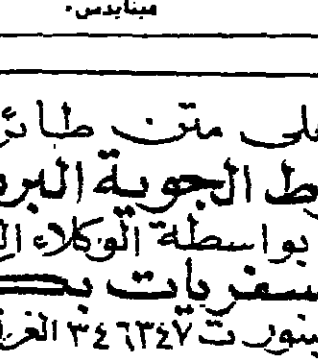 ميتايدس.
على متن طائر
ط الجوية البر
بواسطة الوكلاء ال
سفريات بك
ينور ت ٣٤٦٣٤٧ الغر